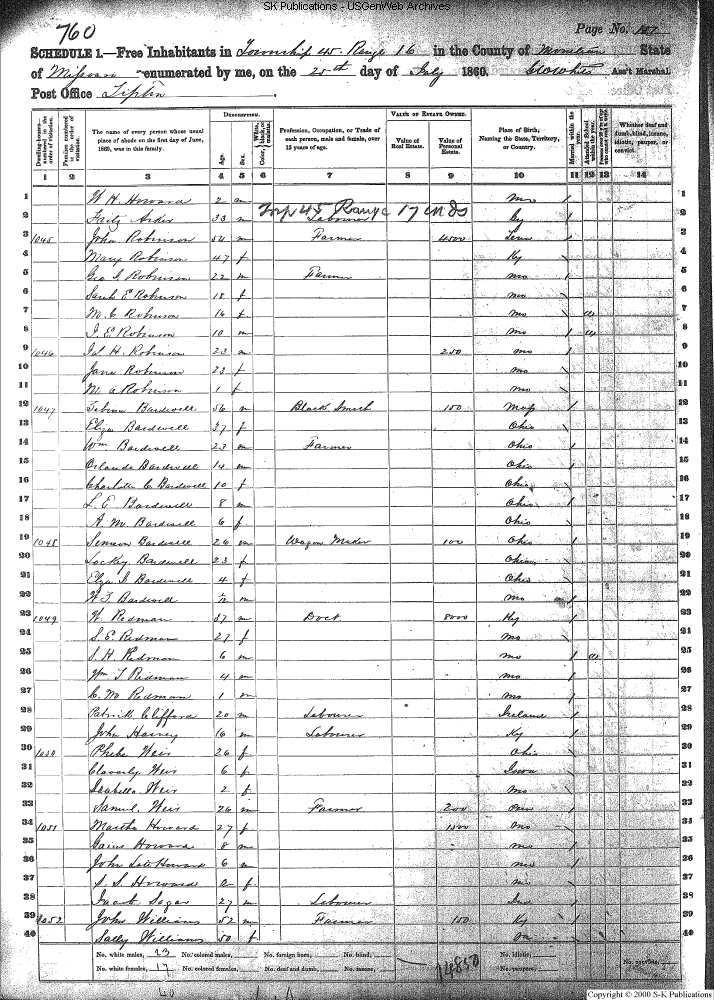 SK Publications - USGenWeb Archives
760
Page No. 107
SCHEDULE 1.—Free Inhabitants in Township 45 Range 16 in the County of Moniteau State
of Missouri enumerated by me, on the 25th day of July 1860. Ass't Marshal
Post Office Tipton
DESCRIPTION. VALUE OF ESTATE OWNED.
Dwelling-houses—numbered in the order of visitation. Families numbered in the order of visitation. The name of every person whose usual place of abode on the first day of June, 1860, was in this family. Age. Sex. Color, White, black, or mulatto. Profession, Occupation, or Trade of each person, male and female, over 15 years of age. Value of Real Estate. Value of Personal Estate. Place of Birth, Naming the State, Territory, or Country. Married within the year. Attended School within the year. Whether deaf and dumb, blind, insane, idiotic, pauper, or convict.
1 2 3 4 5 6 7 8 9 10 11 12 13 14
1 W H Howard 2 m Mo 1
2 Fritz 33 m Labourer Ky 2
Twp 45 Range 17 ends
3 1045 John Robinson 52 m Farmer 4500 Tenn 3
4 Mary Robinson 47 f Ky 4
5 Geo S Robinson 22 m Farmer mo 5
6 Sarah E Robinson 18 f mo 6
7 M. C. Robinson 16 f mo 7
8 J. E. Robinson 10 m mo 8
9 1046 Js. H. Robinson 23 m 250 mo 9
10 Jane Robinson 23 f mo 10
11 M. A Robinson 1 f mo 11
12 1047 Bardwell 56 m Black Smith 150 Mass 12
13 Eliza Bardwell 37 f Ohio 13
14 Wm Bardwell 23 m Farmer Ohio 14
15 Orlando Bardwell 14 m Ohio 15
16 Charlotte C Bardwell 10 f Ohio 16
17 L. E Bardwell 8 m Ohio 17
18 A. M. Bardwell 6 f Ohio 18
19 1048 Simeon Bardwell 26 m Wagon Maker 100 Ohio 19
20 Lockey Bardwell 23 f Ohio 20
21 Eliza J Bardwell 4 f Ohio 21
22 W. F. Bardwell m Mo 22
23 1049 W. Redman 37 m Doct. 8000 Ky 23
24 S. E. Redman 27 f mo
25 S. H Redman 6 m mo 25
26 Wm T Redman 4 m mo 26
27 C. M Redman 1 m mo 27
28 Patrick Clifford 20 m Labourer Ireland 28
29 John Harvey 16 m Labourer Ky 29
30 1050 Phebe Weir 26 f Ohio 30
31 Weir 6 f Iowa 31
32 Isabella Weir 2 f mo 32
33 Samuel Weir 26 m Farmer 200 33
34 1051 Martha Howard 27 f 1500 Mo 34
35 Howard 8 m mo 35
36 John Howard 6 m mo 36
37 S. S. Howard f mo 37
38 Jacob Sagar 27 m Labourer Ind 38
39 1052 John Williams 52 m Farmer 150 Ky 39
40 Sally Williams 50 f Va 40
No. white males, 23 No. colored males, No. foreign born, No. blind, No. idiotic,
No. white females, 17 No. colored females, No. deaf and dumb, No. insane, 14850 No. paupers, No. convicts,
40
Copyright © 2000 S-K Publications